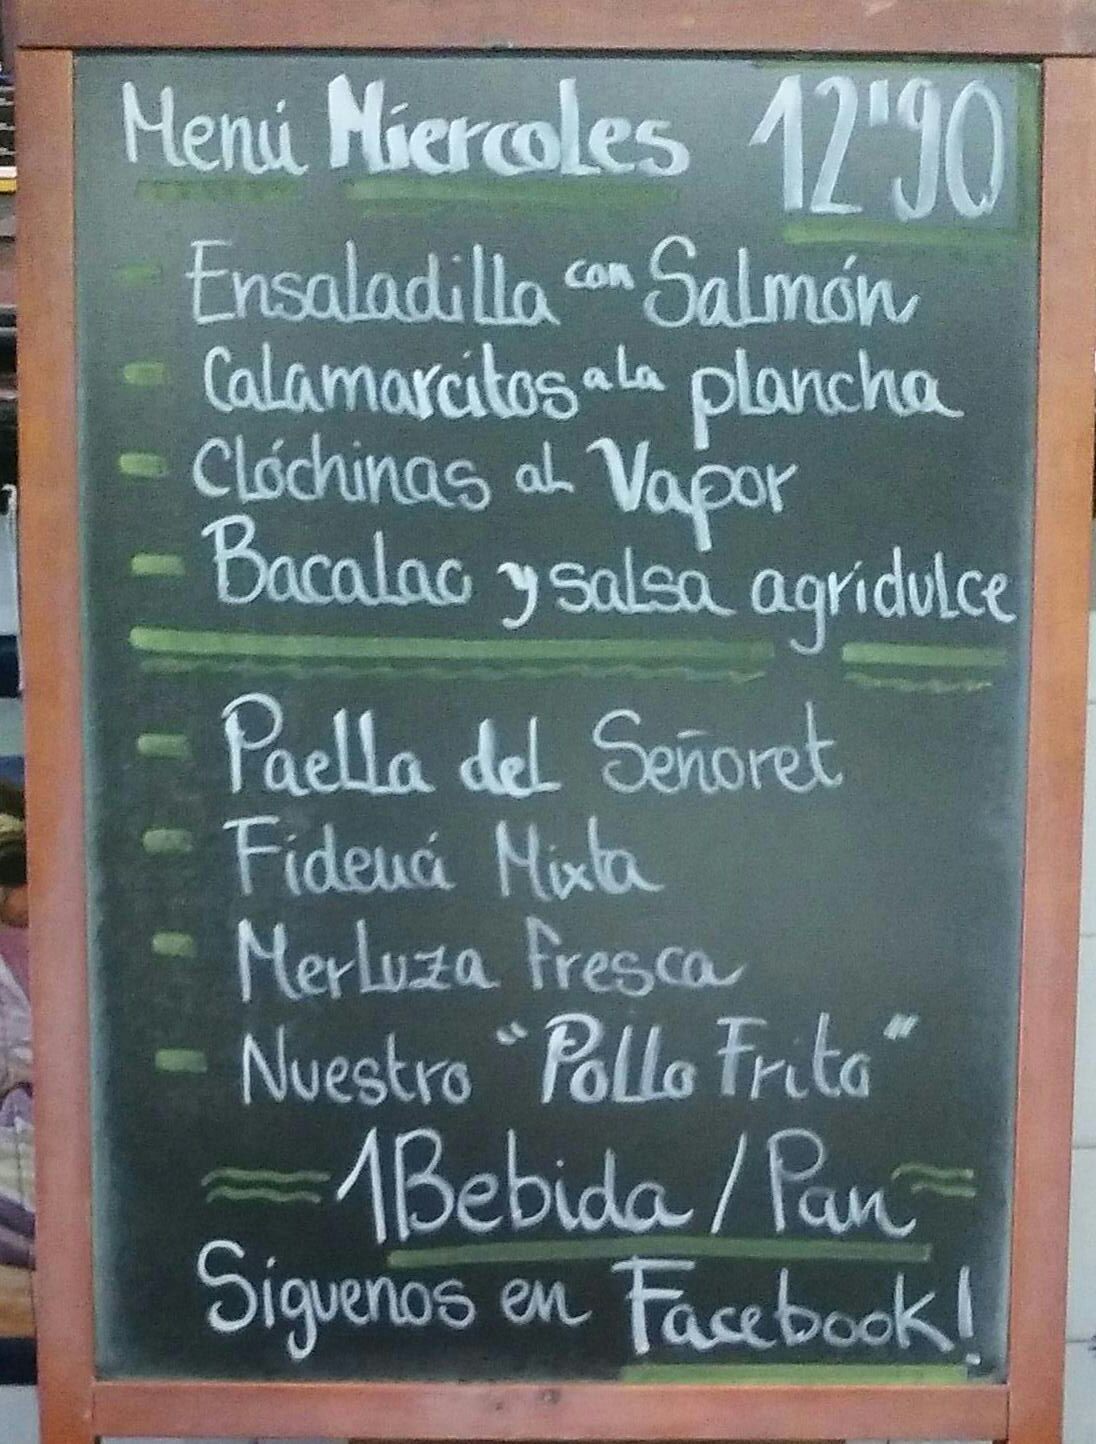 Menú Miercoles 12'90
- Ensaladilla con Salmón
- Calamarcitos a la plancha
- Clóchinas al Vapor
- Bacalao y salsa agridulce
- Paella del Señoret
- Fideuá Mixta
- Merluza fresca
- Nuestro "Pollo Frito"
1 Bebida / Pan
Síguenos en Facebook!